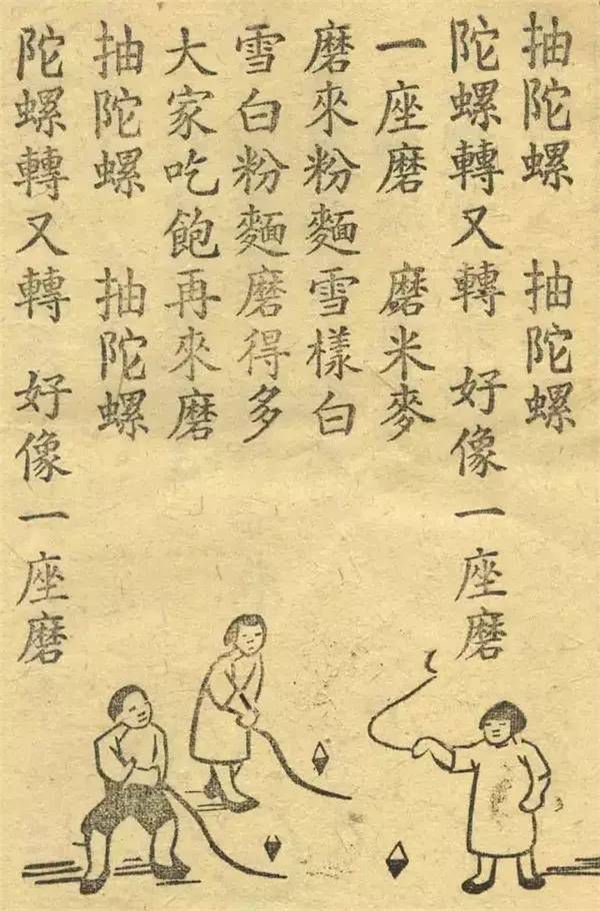 抽陀螺　抽陀螺
陀螺轉又轉　好像一座磨
一座磨　磨米麥
磨來粉麵雪樣白
雪白粉麵磨得多
大家吃飽再來磨
抽陀螺　抽陀螺
陀螺轉又轉　好像一座磨